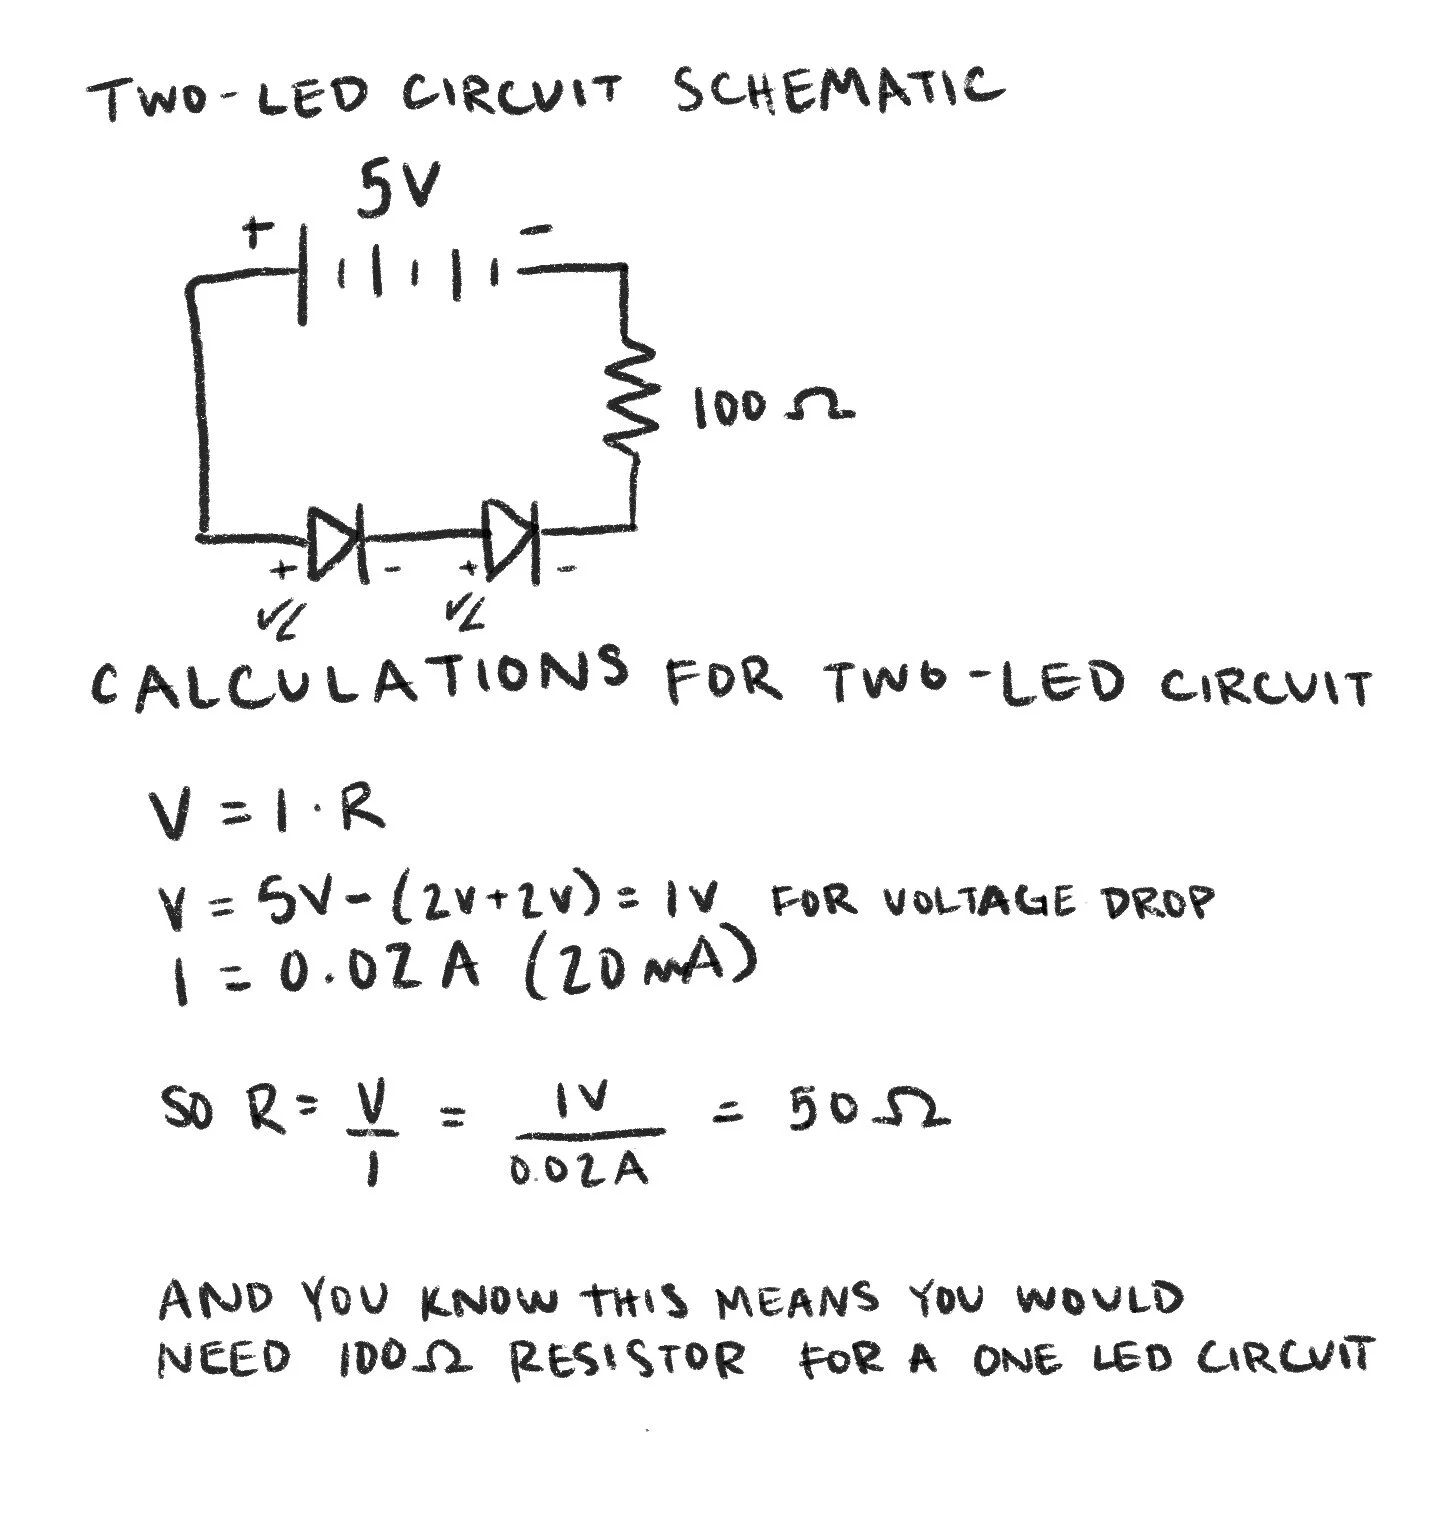 TWO-LED CIRCUIT SCHEMATIC
5V
+ -
100 Ω
+ - + -
CALCULATIONS FOR TWO-LED CIRCUIT
V = I · R
V = 5V - (2V + 2V) = 1V FOR VOLTAGE DROP
I = 0.02 A (20 mA)
SO R = V/I = 1V/0.02A = 50 Ω
AND YOU KNOW THIS MEANS YOU WOULD
NEED 100Ω RESISTOR FOR A ONE LED CIRCUIT